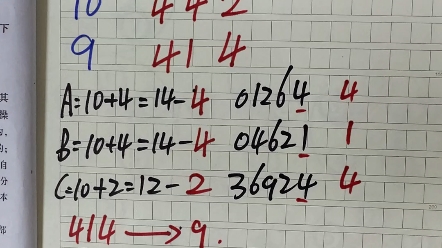 10 4 4 2
9 4 1 4
A=10+4=14-4 01264 4
B=10+4=14-4 04621 1
C=10+2=12-2 36924 4
414→9.
下
其
操
自
分
本
部